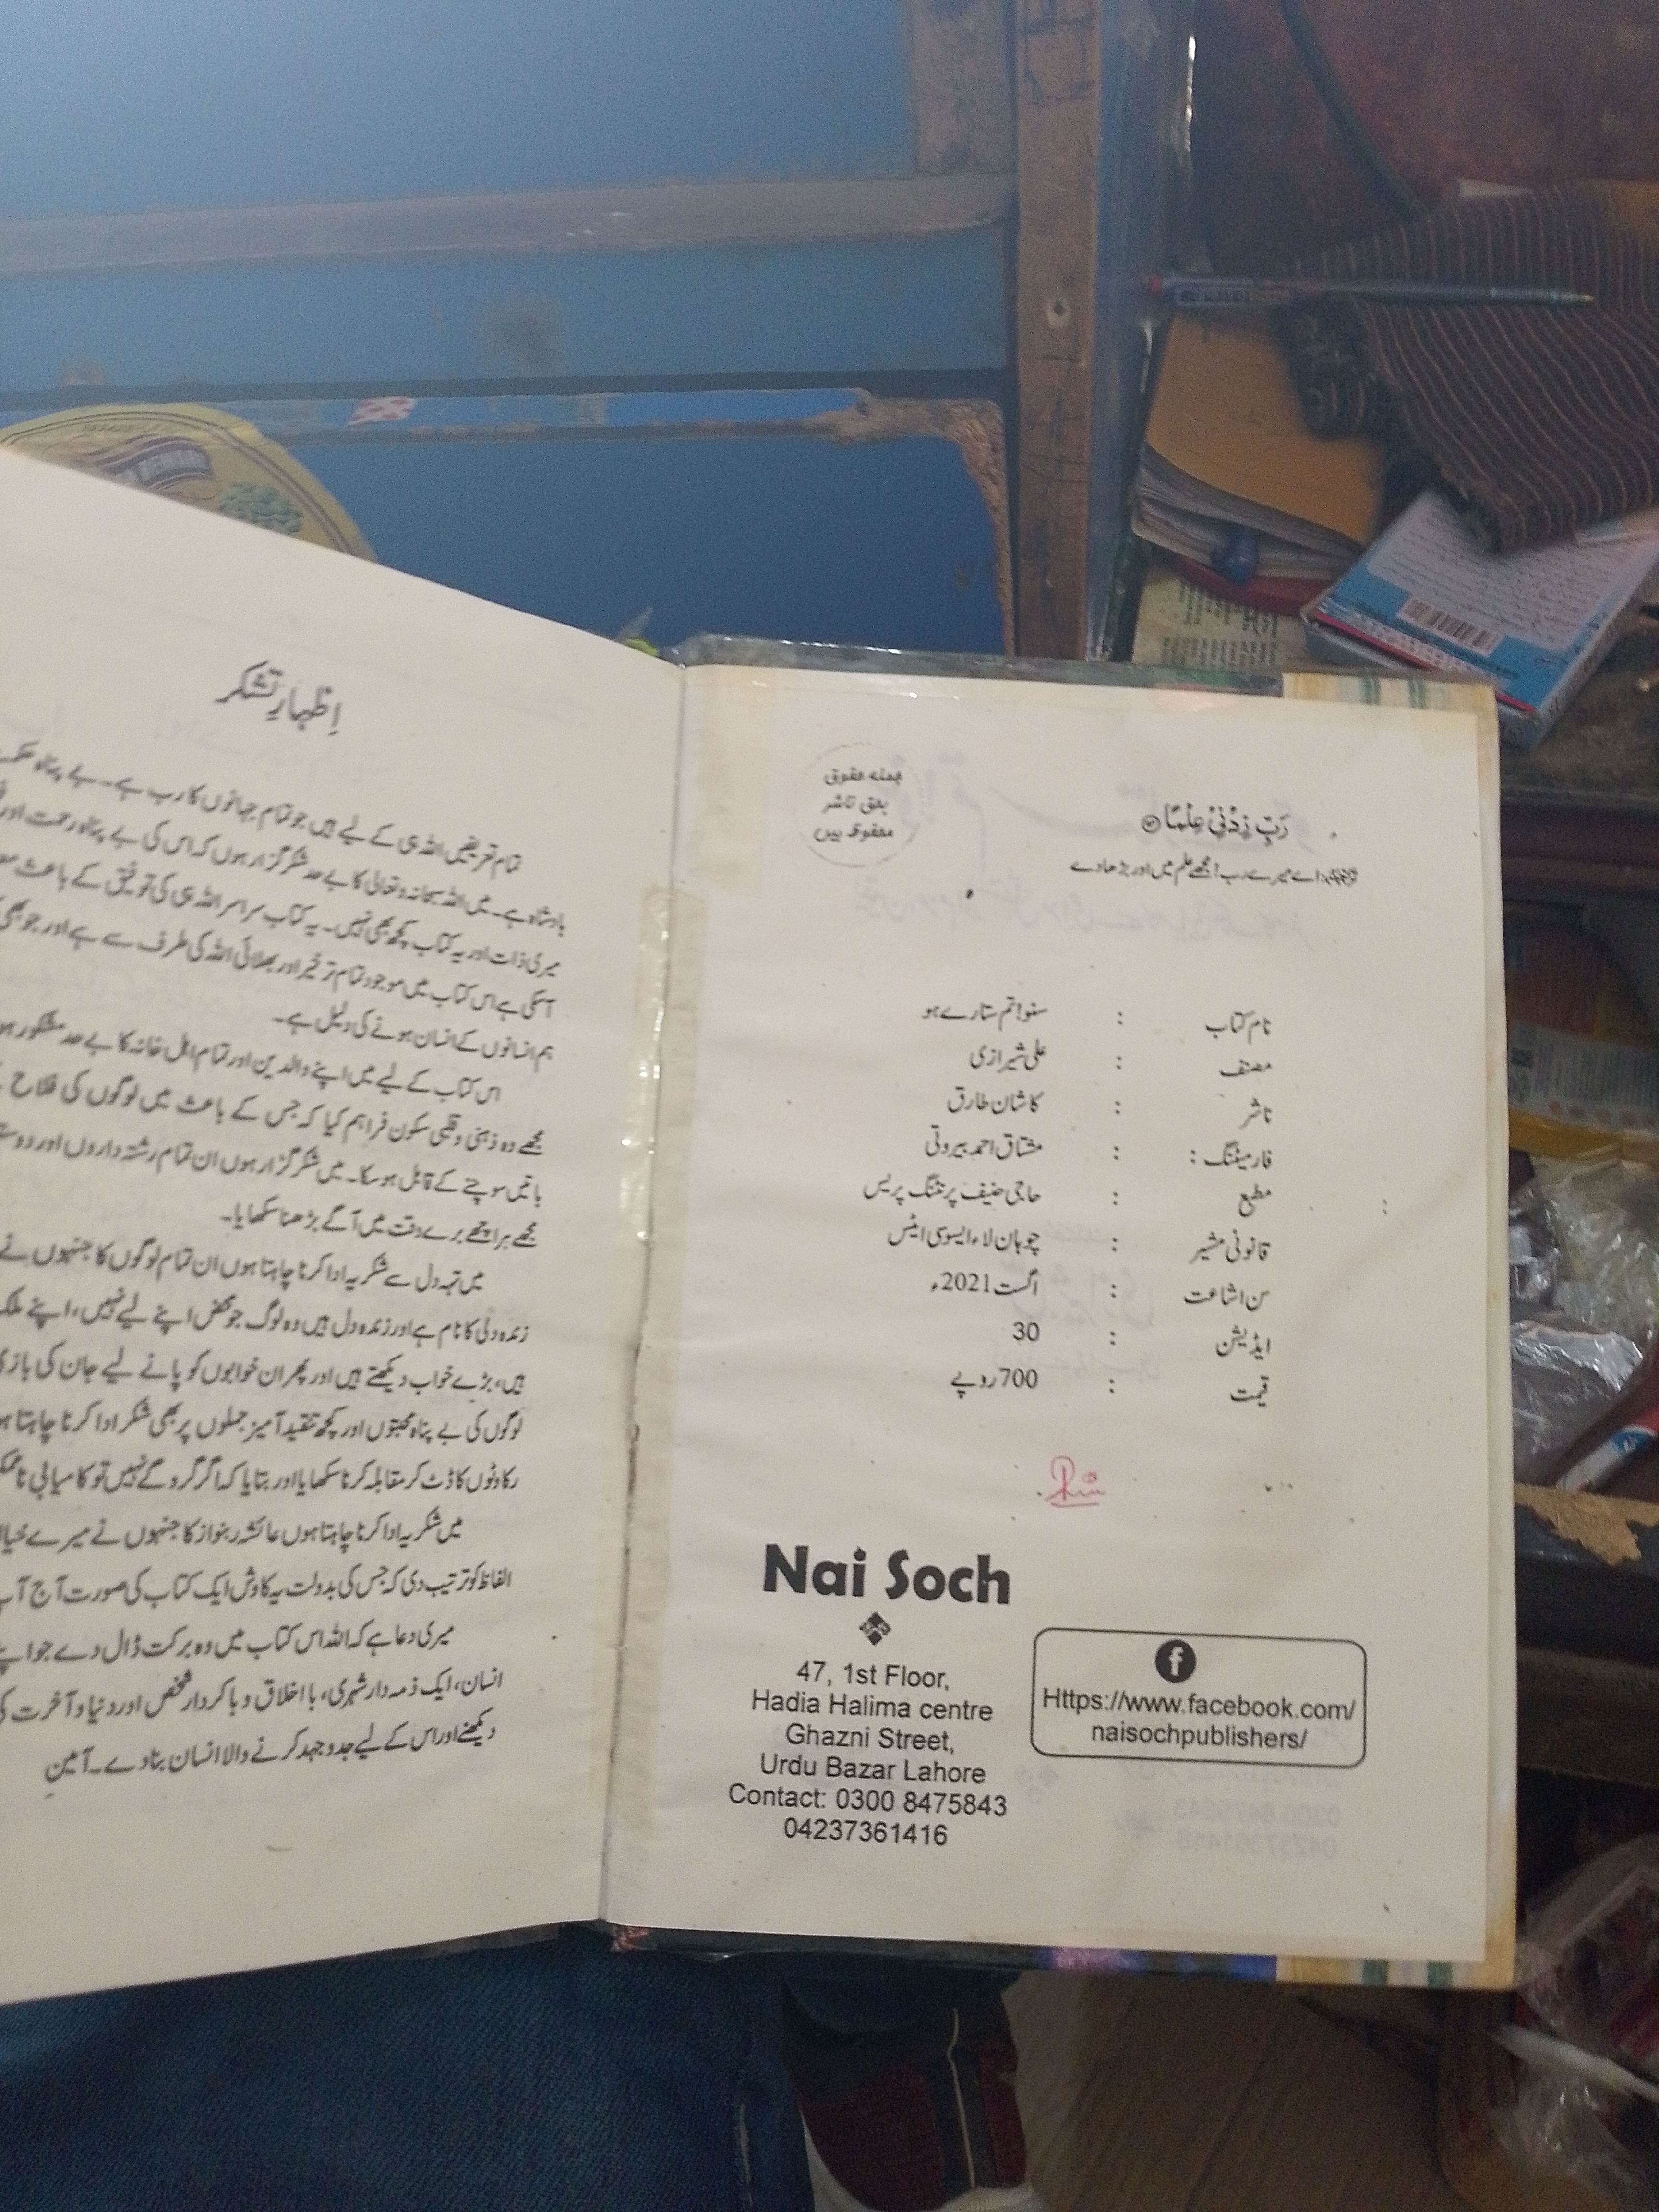 جملہ حقوق
بحق ناشر
محفوظ ہیں
رَبِّ زِدْنِیْ عِلْمًا
ترجمہ: اے میرے رب! مجھے علم میں اور بڑھا دے
نام کتاب : سنو! تم ستارے ہو
مصنف : علی شیرازی
ناشر : کاشان طارق
فارمیٹنگ : : مشتاق احمد بیروٹی
مطبع : حاجی حنیف پرنٹنگ پریس
قانونی مشیر : چوہان لاء ایسوسی ایٹس
سن اشاعت : اگست 2021ء
ایڈیشن : 30
قیمت : 700 روپے
Nai Soch
47, 1st Floor,
Hadia Halima centre
Ghazni Street,
Urdu Bazar Lahore
Contact: 0300 8475843
04237361416
Https://www.facebook.com/
naisochpublishers/
اِظہارِ تشکر
تمام تعریفیں اللہ ہی کے لیے ہیں جو تمام جہانوں کا رب ہے۔ بے پناہ
بادشاہ ہے۔ میں اللہ سبحانہ وتعالیٰ کا بے حد شکر گزار ہوں کہ اس کی بے پناہ رحمت اور
میری ذات اور یہ کتاب کچھ بھی نہیں۔ یہ کتاب سراسر اللہ ہی کی توفیق کے باعث
آسکی ہے اس کتاب میں موجود تمام تر خیر اور بھلائی اللہ کی طرف سے ہے اور جو بھی
ہم انسانوں کے انسان ہونے کی دلیل ہے۔
اس کتاب کے لیے میں اپنے والدین اور تمام اہل خانہ کا بے حد مشکور
مجھے وہ ذہنی و قلبی سکون فراہم کیا کہ جس کے باعث میں لوگوں کی فلاح
باتیں سوچنے کے قابل ہو سکا۔ میں شکر گزار ہوں ان تمام رشتہ داروں اور
مجھے ہر اچھے برے وقت میں آگے بڑھنا سکھایا۔
میں تہہ دل سے شکریہ ادا کرنا چاہتا ہوں ان تمام لوگوں کا جنہوں نے
زندہ دلی کا نام ہے اور زندہ دل ہیں وہ لوگ جو محض اپنے لیے نہیں، اپنے
ہیں، بڑے خواب دیکھتے ہیں اور پھر ان خوابوں کو پانے لیے جان کی
لوگوں کی بے پناہ محبتوں اور کچھ تنقید آمیز جملوں پر بھی شکر ادا کرنا چاہتا
رکاوٹوں کا ڈٹ کر مقابلہ کرنا سکھایا اور بتایا کہ اگر گرو گے نہیں تو کامیابی
میں شکریہ ادا کرنا چاہتا ہوں عائشہ ربنواز کا جنہوں نے میرے
الفاظ کو ترتیب دی کہ جس کی بدولت یہ کاوش ایک کتاب کی صورت آج
میری دعا ہے کہ اللہ اس کتاب میں وہ برکت ڈال دے جو
انسان، ایک ذمہ دار شہری، با اخلاق و باکردار شخص اور دنیا و آخرت
دیکھنے اور اس کے لیے جدوجہد کرنے والا انسان بنا دے۔ آمین